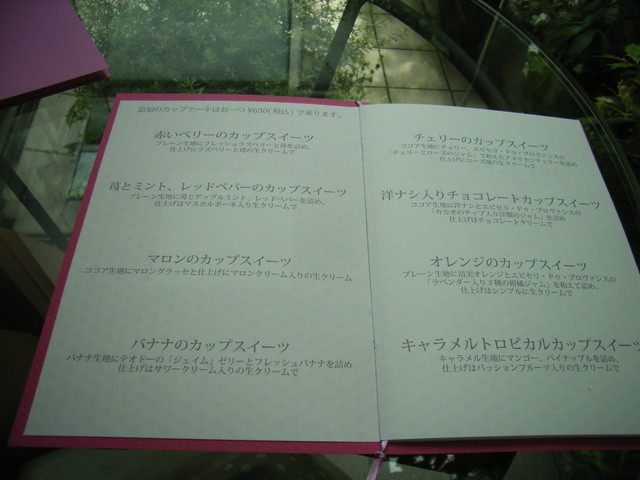 追加のカップケーキはお一つ ¥630(税込) で承ります。
赤いベリーのカップスイーツ
プレーン生地にフレッシュラズベリーと苺を詰め、
仕上げにラズベリーと苺の生クリームで
苺とミント、レッドペパーのカップスイーツ
プレーン生地に苺とアップルミント、レッドペパーを詰め、
仕上げはマスカルポーネ入り生クリームで
マロンのカップスイーツ
ココア生地にマロングラッセと仕上げにマロンクリーム入りの生クリーム
バナナのカップスイーツ
バナナ生地にテオドーの「ジェイム」ゼリーとフレッシュバナナを詰め
仕上げはサワークリーム入りの生クリームで
チェリーのカップスイーツ
ココア生地にチェリー、エピセリ・ドゥ・プロヴァンスの
「チェリーとローズのジャム」で和えたアメリカンチェリーを詰め
仕上げにローズ風の生クリームで
洋ナシ入りチョコレートカップスイーツ
ココア生地に洋ナシとエピセリ・ドゥ・プロヴァンスの
「カカオのチップ入り洋梨のジャム」を詰め
仕上げはチョコレートクリームで
オレンジのカップスイーツ
プレーン生地に清美オレンジとエピセリ・ドゥ・プロヴァンスの
「ラベンダー入り3種の柑橘ジャム」を和えて詰め、
仕上げはシンプルに生クリームで
キャラメルトロピカルカップスイーツ
キャラメル生地にマンゴー、パイナップルを詰め、
仕上げはパッションフルーツ入りの生クリームで